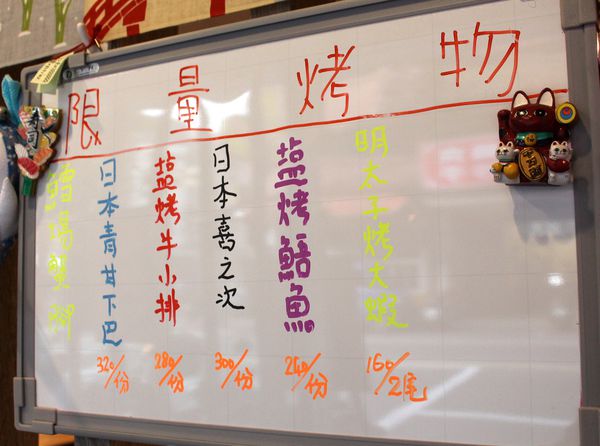 限量烤物
鱈場蟹腳
日本青甘下巴
320/份
塩烤牛小排
280/份
日本喜之次
300/份
塩烤鯃魚
260/份
明太子烤大蝦
160/2尾